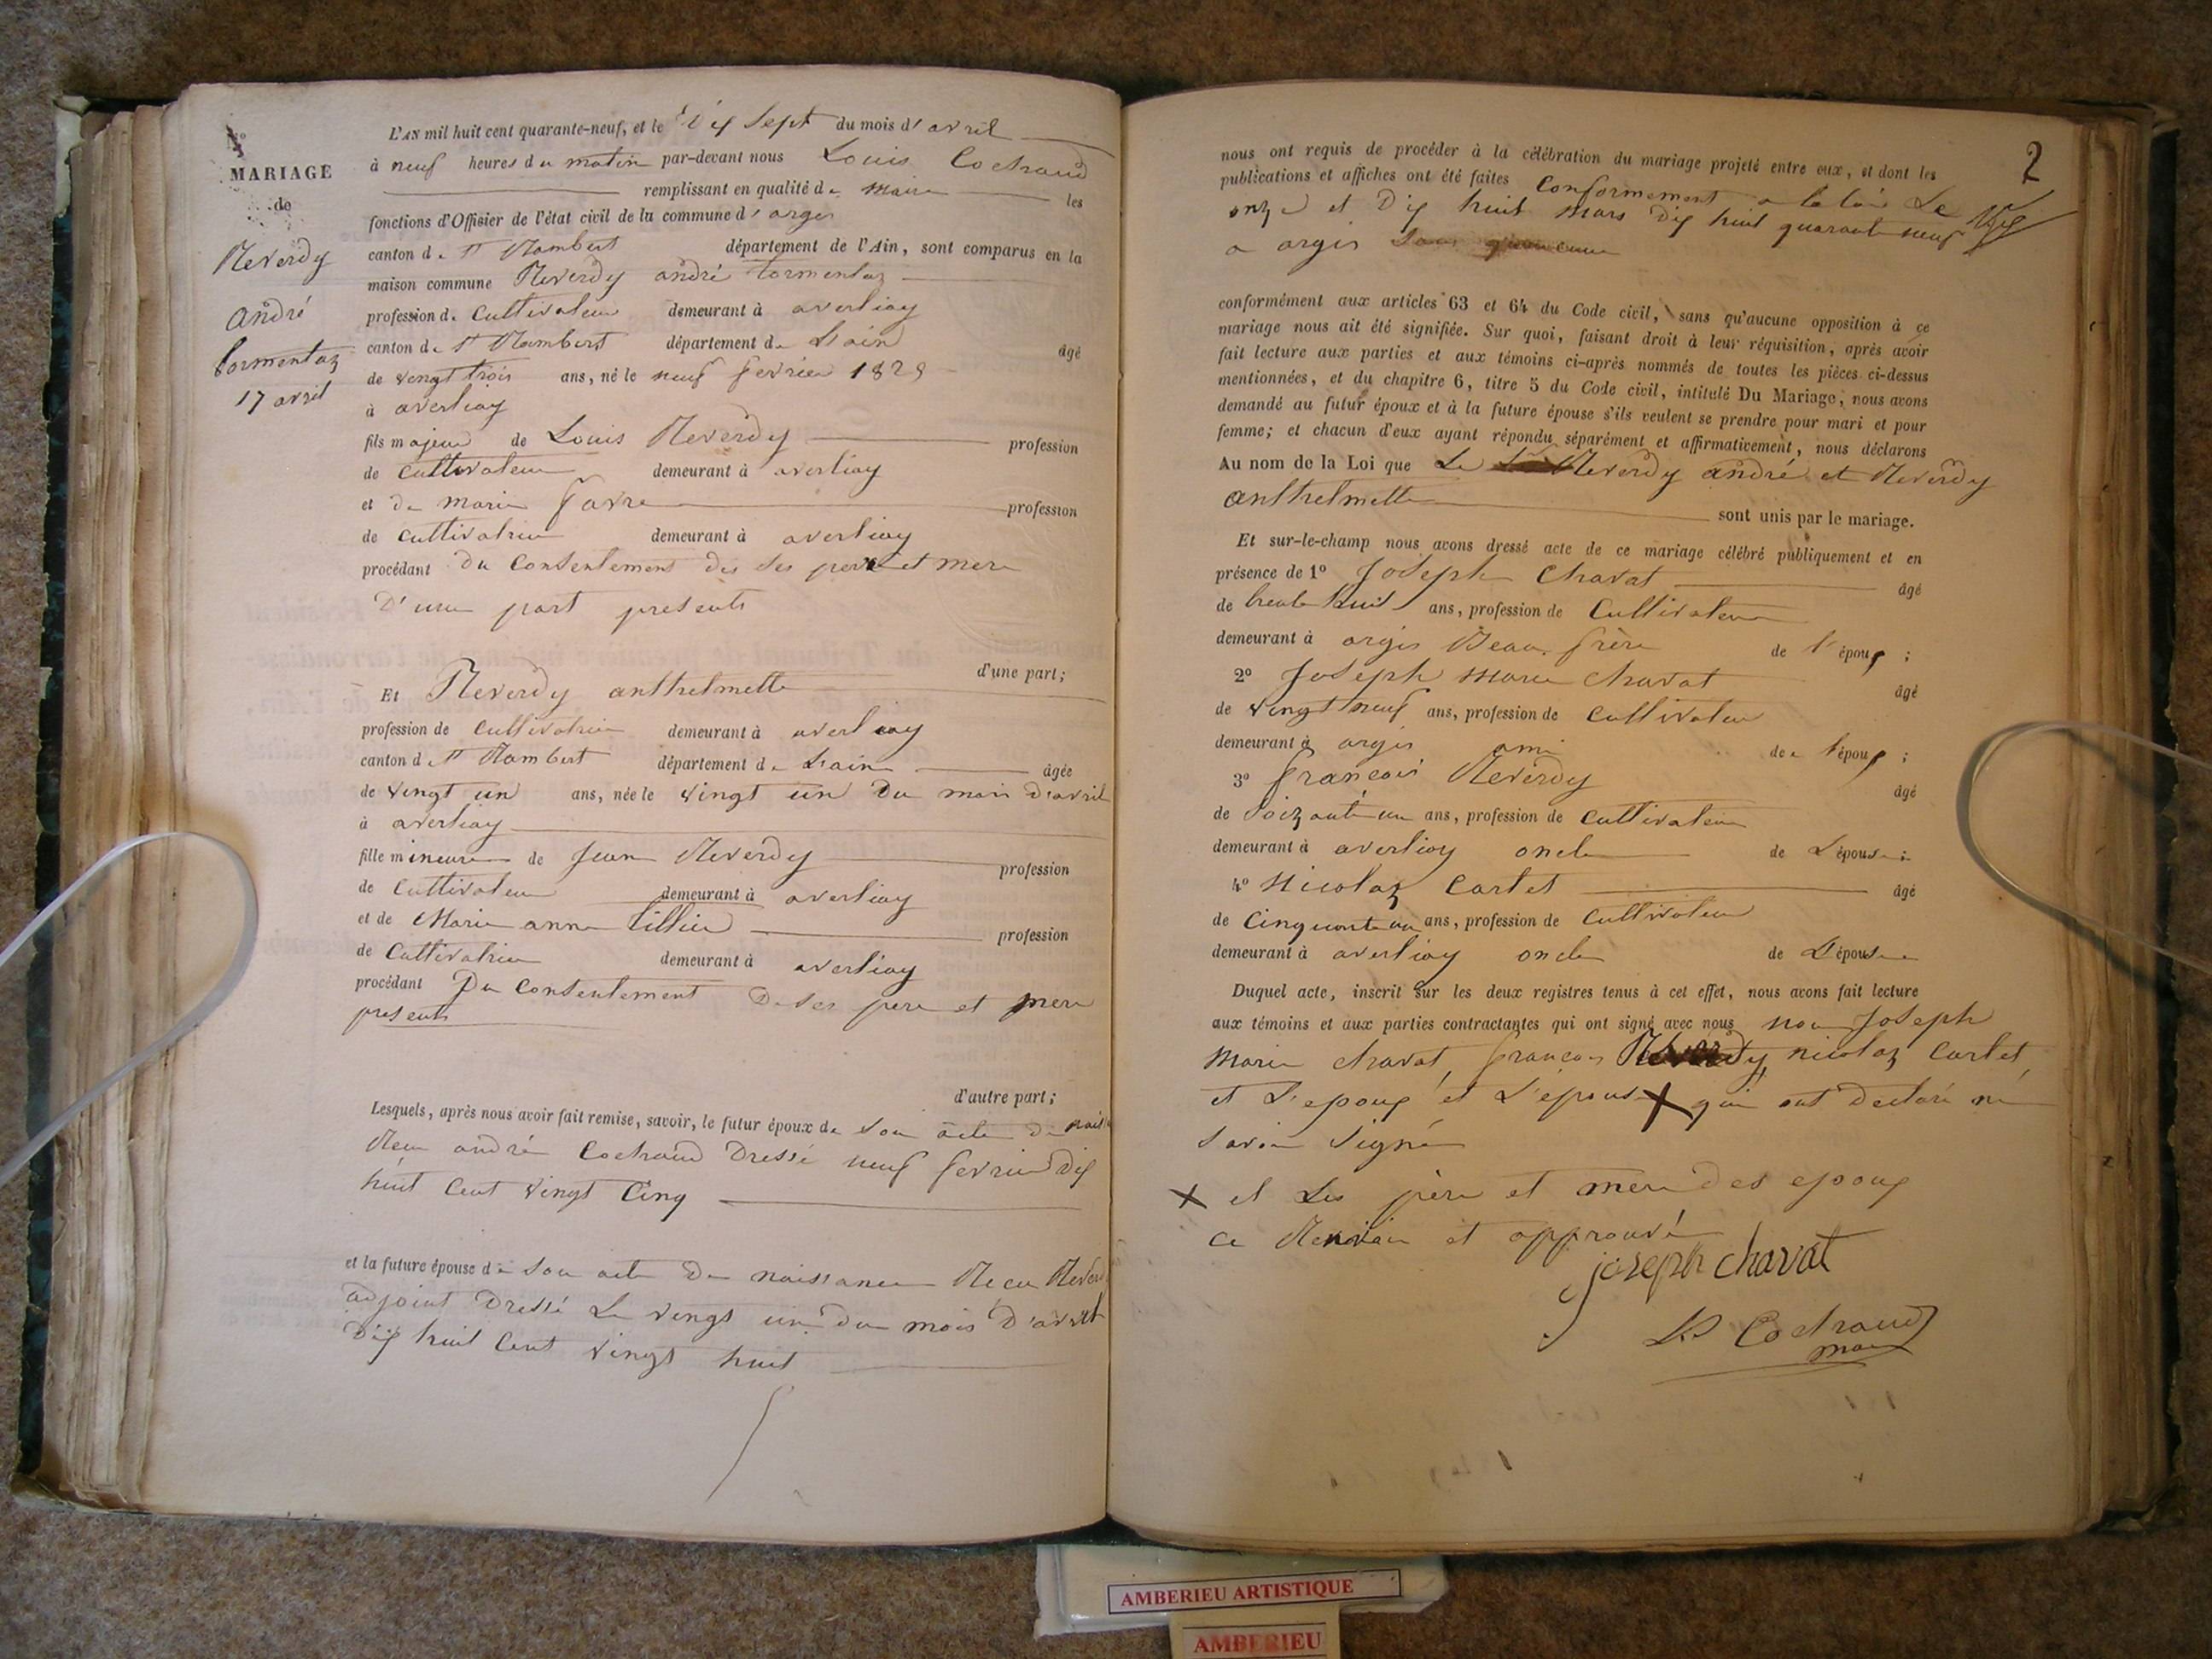 N°
MARIAGE
de
Reverdy
andré
tormentaz
17 avril
L'AN mil huit cent quarante-neuf, et le Dix Sept du mois d'avril
à neuf heures du matin par-devant nous Louis Cochraud
remplissant en qualité de maire les
fonctions d'Offisier de l'état civil de la commune d'argis
canton de St Rambert département de l'Ain, sont comparus en la
maison commune Reverdy andré tormentaz
profession de Cultivateur demeurant à averliay
canton de St Rambert département de L'ain âgé
de vingt trois ans, né le neuf fevrier
à averliay
fils majeur de Louis Reverdy profession
de Cultivateur demeurant à averliay
et de marie favre profession
de Cultivatrice demeurant à averliay
procédant du Consentement des ses pere et mere
D'une part presents
d'une part;
Et Reverdy anthelmette
profession de Cultivatrice demeurant à averliay
canton de St Rambert département de L'ain âgée
de vingt un ans, née le vingt un du mois d'avril
à averliay
fille mineure de Jean Reverdy profession
de Cultivateur demeurant à averliay
et de Marie anne tillier profession
de Cultivatrice demeurant à averliay
procédant Du Consentement De ses pere et mere
presents
d'autre part;
Lesquels, après nous avoir fait remise, savoir, le futur époux de Son acte de
Recu andré Cochraud Dressé neuf fevrier dix
huit Cent vingt Cinq
et la future épouse de Son acte De naissance Recu
adjoint Dressé Le vingt un du mois D'avril
Dix huit Cent vingt huit
2
nous ont requis de procéder à la célébration du mariage projeté entre eux, et dont les
publications et affiches ont été faites Conformement a la loi Le
onze et Dix huit mars Dix huit quarante neuf
a argis
conformément aux articles 63 et 64 du Code civil, sans qu'aucune opposition à ce
mariage nous ait été signifiée. Sur quoi, faisant droit à leur réquisition, après avoir
fait lecture aux parties et aux témoins ci-après nommés de toutes les pièces ci-dessus
mentionnées, et du chapitre 6, titre 5 du Code civil, intitulé Du Mariage, nous avons
demandé au futur époux et à la future épouse s'ils veulent se prendre pour mari et pour
femme; et chacun d'eux ayant répondu séparément et affirmativement, nous déclarons
Au nom de la Loi que Le Reverdy andré et Reverdy
anthelmette sont unis par le mariage.
Et sur-le-champ nous avons dressé acte de ce mariage célébré publiquement et en
présence de 1° Joseph Chavat âgé
de trente huit ans, profession de Cultivateur
demeurant à argis Beau frère de l'époux ;
2° Joseph marie Chavat âgé
de vingt neuf ans, profession de cultivateur
demeurant à argis ami de l'époux ;
3° francois Reverdy âgé
de Soizante un ans, profession de Cultivateur
demeurant à averliay oncle de L'épouse ;
4° Nicolaz Carlet âgé
de Cinquante un ans, profession de Cultivateur
demeurant à averliay oncle de L'épouse
Duquel acte, inscrit sur les deux registres tenus à cet effet, nous avons fait lecture
aux témoins et aux parties contractantes qui ont signé avec nous non Joseph
Marie Chavat, francois Reverdy, nicolaz Carlet
et L'epoux et L'epouse X qui ont declaré ne
Savoir Signé
X et Les père et mere des epoux
Ce Renvoi et approuvé
joseph chavat
Ls Cochraud
maire
AMBERIEU ARTISTIQUE
AMBERIEU